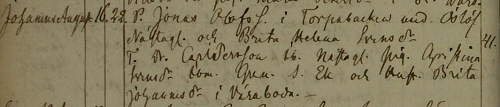 Johannes August 16. 23. P. Jonas Olofss. i Torpabacken und. Oslöf
Nattagl. och Brita Helena Svensdr 41.
T. Dr. Carl Persson ib. Nattagl. pig. Christina
Svensdr ibm. Gren. S. Ek och Hust. Brita
Johannsdr i Våraboda.